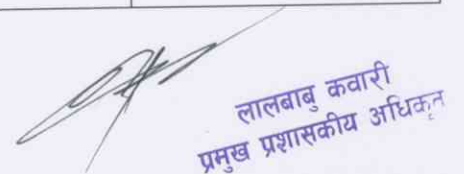 लालबाबु कवारी
प्रमुख प्रशासकीय अधिकृत